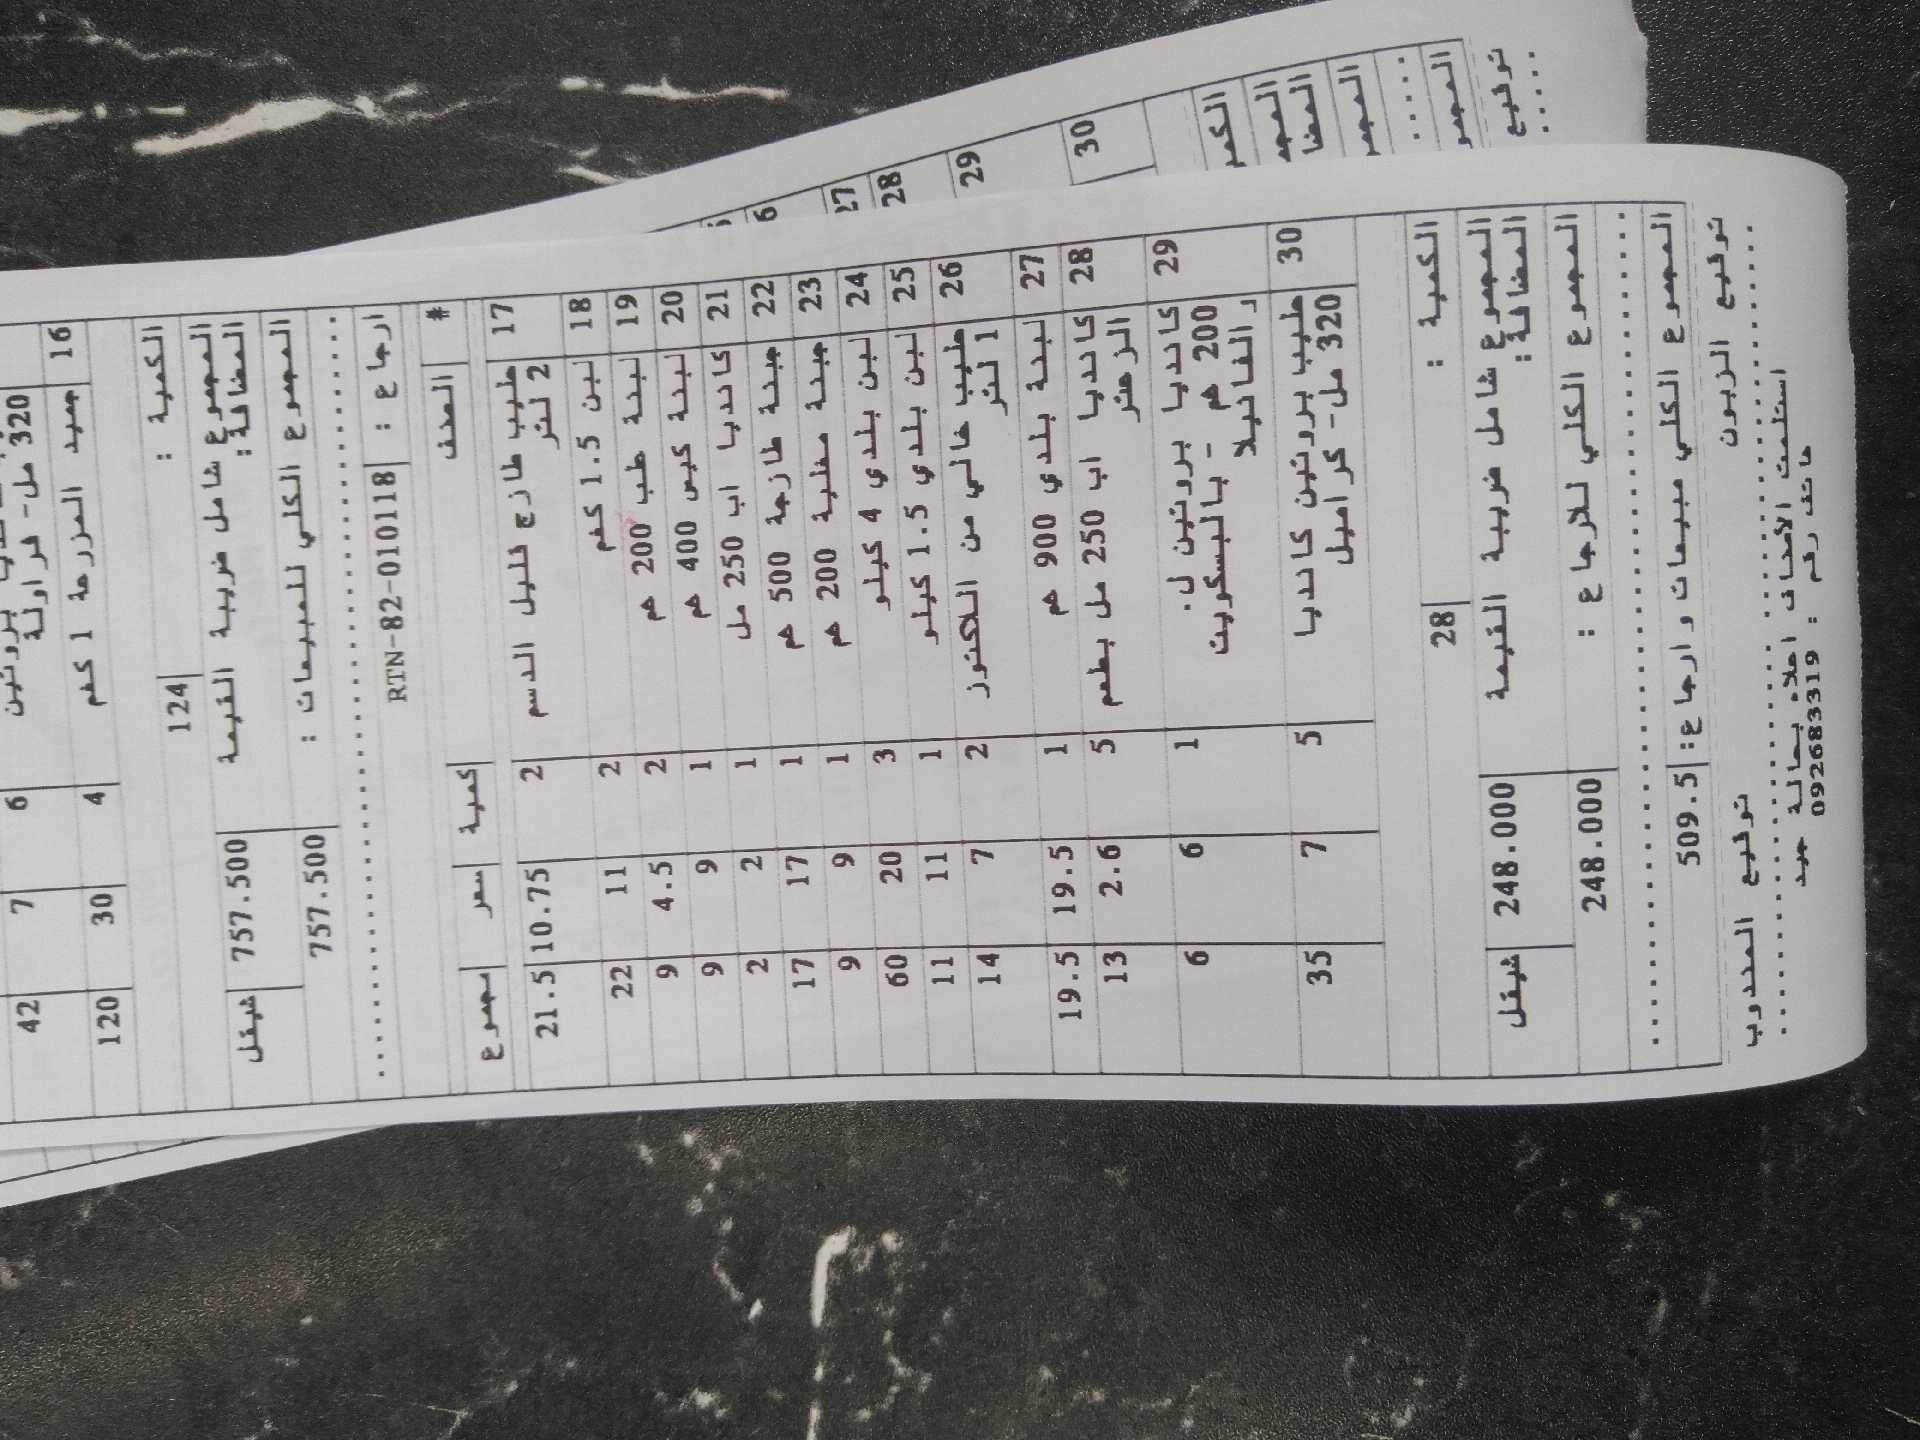 320 مل- فراولة 6 7 42
16 جميد المزرعة 1 كغم 4 30 120
الكمية : 124
المجموع شامل ضريبة القيمة 757.500 شيقل
المضافة:
المجموع الكلي للمبيعات : 757.500
....................................
ارجاع : RTN-82-010118
# الصنف كمية سعر مجموع
17 حليب طازج قليل الدسم 2 10.75 21.5
2 لتر
18 لبن 1.5 كغم 2 11 22
19 لبنة علب 200 غم 2 4.5 9
20 لبنة كيس 400 غم 1 9 9
21 كانديا اب 250 مل 1 2 2
22 جبنة طازجة 500 غم 1 17 17
23 جبنة مغلية 200 غم 1 9 9
24 لبن بلدي 4 كيلو 3 20 60
25 لبن بلدي 1.5 كيلو 1 11 11
26 حليب خالي من اللاكتوز 2 7 14
1 لتر
27 لبنة بلدي 900 غم 1 19.5 19.5
28 كانديا اب 250 مل بطعم 5 2.6 13
الزعتر
29 كانديا بروتين ل. 1 6 6
200 غم - بالبسكويت
و الفانيلا
30 حليب بروتين كانديا 5 7 35
320 مل- كراميل
الكمية : 28
المجموع شامل ضريبة القيمة 248.000 شيقل
المضافة:
المجموع الكلي للارجاع : 248.000
....................................
المجموع الكلي مبيعات و ارجاع: 509.5
توقيع الزبون توقيع المندوب
....................................
استلمت الأصناف اعلاه بحالة جيدة
هاتف رقم : 092683319
27
28
29
30
توقيع